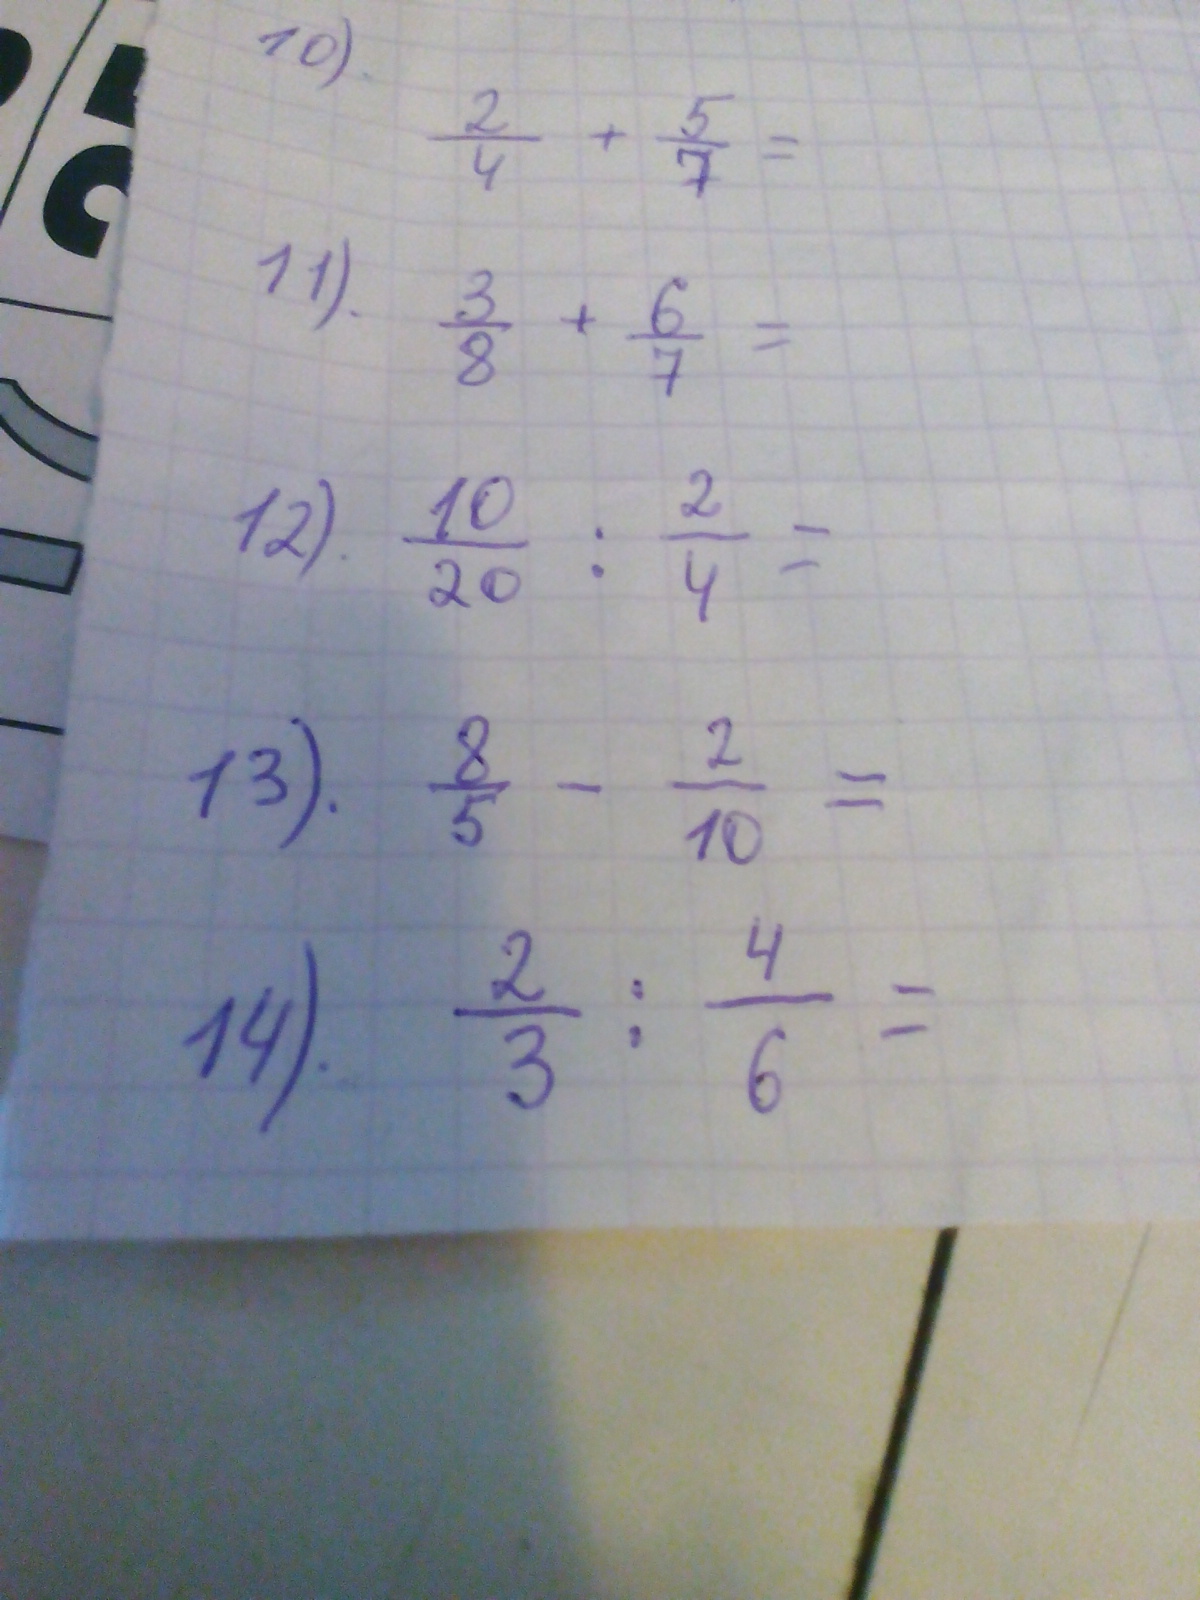 10).
2/4 + 5/7 =
11). 3/8 + 6/7 =
12). 10/20 : 2/4 =
13). 8/5 - 2/10 =
14). 2/3 : 4/6 =